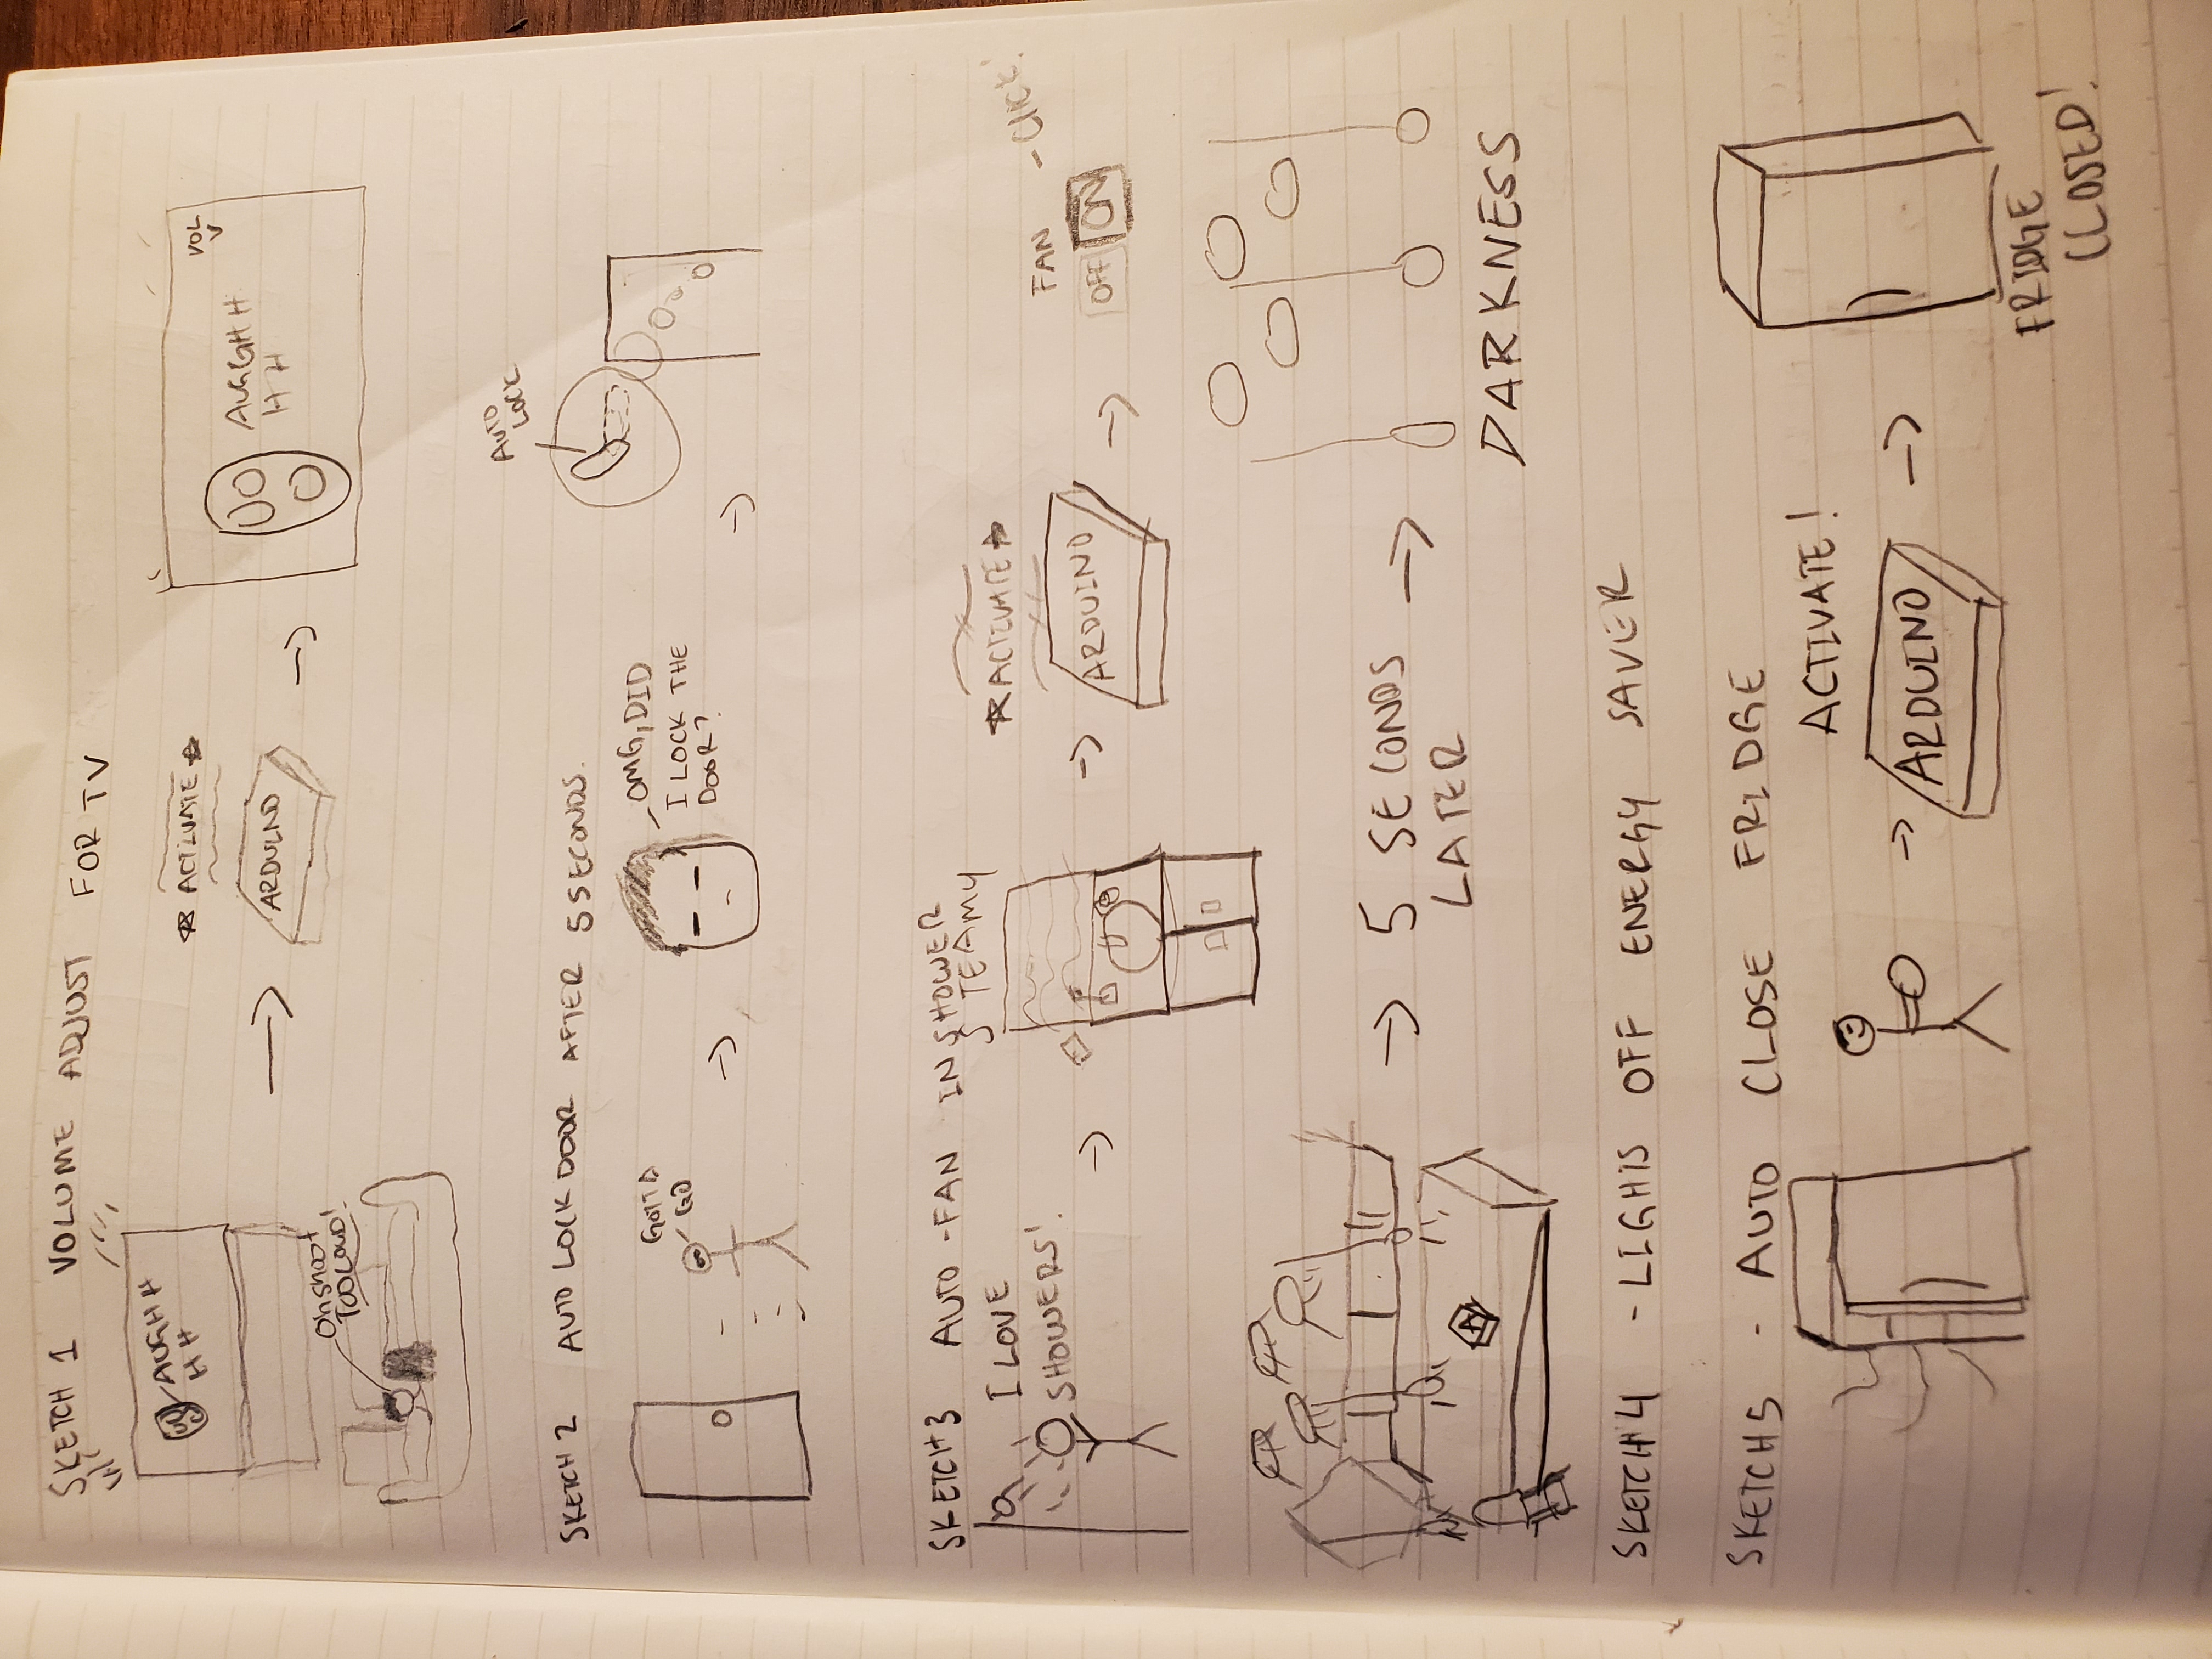 SKETCH 1 VOLUME ADJUST FOR TV
AUGHH
HH
Oh shoot
TOO LOUD!
ACTIVATE
ARDUINO
VOL
V
AUGGHH
HH
SKETCH 2 AUTO LOCK DOOR AFTER 5 SECONDS.
GOTTA
GO
OMG, DID
I LOCK THE
DOOR?
AUTO
LOCK
SKETCH 3 AUTO-FAN IN SHOWER
I LOVE
SHOWERS!
STEAMY
ACTIVATE
ARDUINO
FAN - CLICK!
OFF ON
A
5 SECONDS
LATER
DARKNESS
SKETCH 4 - LIGHTS OFF ENERGY SAVER
SKETCH 5 - AUTO CLOSE FRIDGE
ACTIVATE!
ARDUINO
FRIDGE
CLOSED!